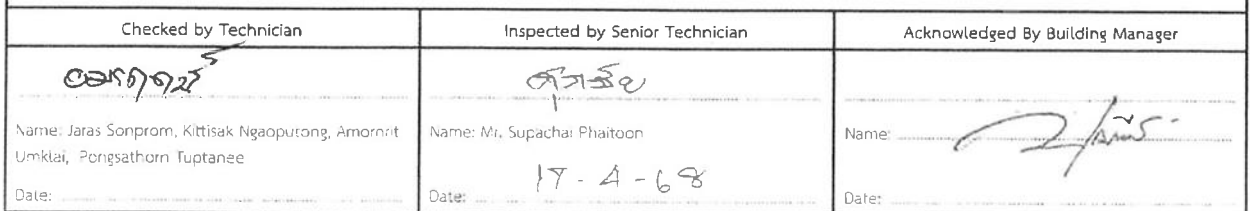 Checked by Technician
Inspected by Senior Technician
Acknowledged By Building Manager
อมรฤทธิ์
ศุภชัย
Name: Jaras Sonprom, Kittisak Ngaoputong, Amornrit
Umklai, Pongsathorn Tuptanee
Name: Mr. Supachai Phaitoon
Name:
Date:
Date: 17-4-68
Date: